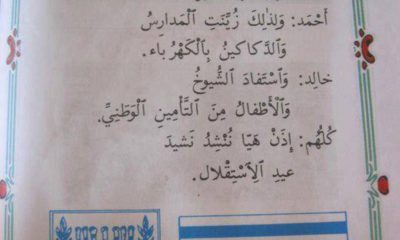 أَحْمَد: وَلِذٰلِكَ زُيِّنَتِ ٱلْمَدارِسُ
وَٱلدَّكاكينُ بِٱلْكَهْرُباء.
خالِد: وَٱسْتَفادَ ٱلشُّيوخُ
وَٱلْأَطْفالُ مِنَ ٱلتَّأْمينِ ٱلْوَطَنِيِّ.
كُلُّهُم: إِذَنْ هَيّا نُنْشِدُ نَشيدَ
عيدِ ٱلِٱسْتِقْلال.